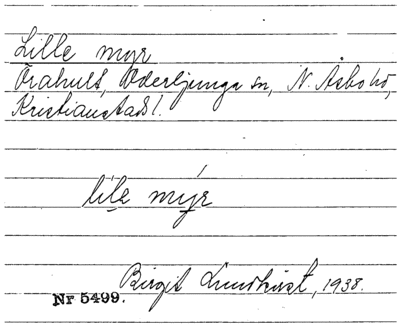 Lille myr
Örahult, Oderljunga sn, N. Åsbo hd,
Kristianstads l.
lila myr
Birgit Lundkvist, 1938.
Nr 5499.